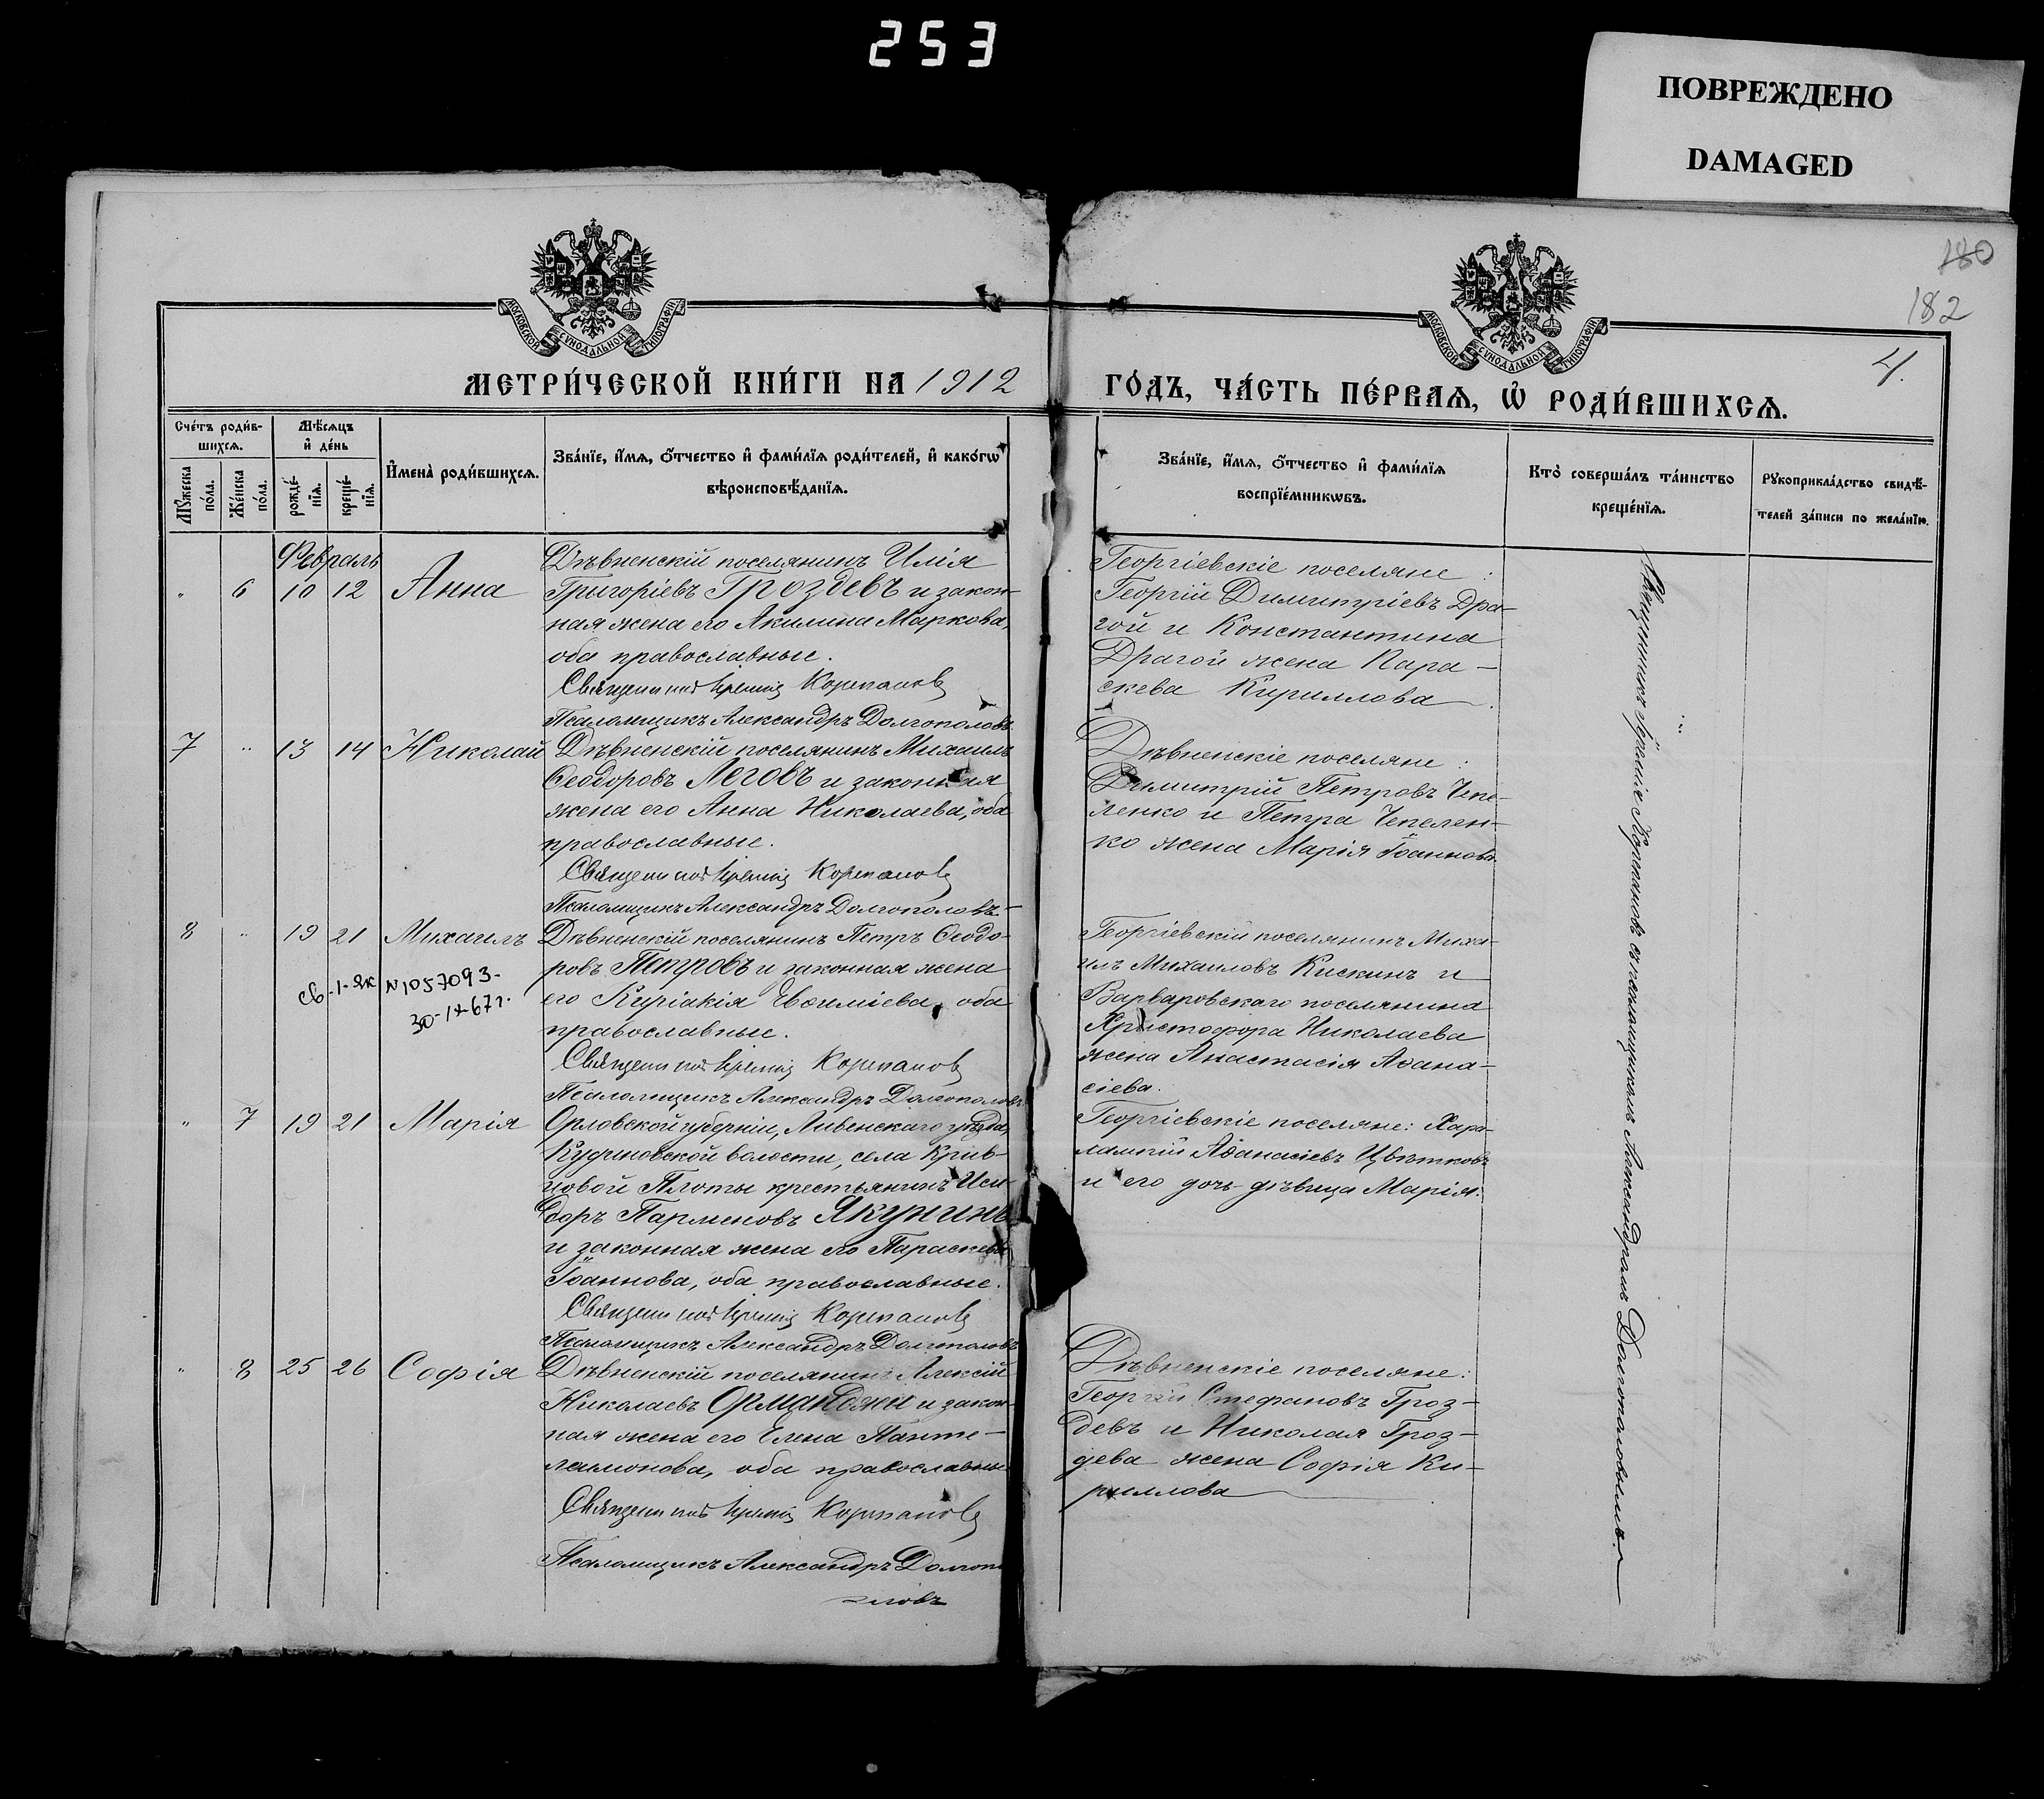 253
ПОВРЕЖДЕНО
DAMAGED
180
182
4.
МОСКОВСКОЙ СѴНОДАЛЬНОЙ ТИПОГРАФІИ
МОСКОВСКОЙ СѴНОДАЛЬНОЙ ТИПОГРАФІИ
МЕТРИ́ЧЕСКОЙ КНИ́ГИ НА 1912
ГО́ДЪ, ЧА́СТЬ ПЕ́РВАѦ, Ѡ҆ РОДИ́ВШИХСѦ.
Сче́тъ роди́в-
шихсѧ.
Мꙋ́жеска
по́ла.
Же́нска
по́ла.
Мѣ́сѧцъ
и҆ де́нь
рожде́-
нїѧ.
креще́-
нїѧ.
И҆мена̀ роди́вшихсѧ.
Зва́нїе, и҆́мѧ, ѻ҆́тчество и҆ фами́лїѧ роди́телей, и҆ како́гѡ
вѣроисповѣ́данїѧ.
Зва́нїе, и҆́мѧ, ѻ҆́тчество и҆ фами́лїѧ
воспрїе́мникѡвъ.
Кто̀ соверша́лъ та́инство
креще́нїѧ.
Рꙋкоприкла́дство свидѣ́-
телей за́писи по жела́нїю.
Февраль
" 6 10 12 Анна
Дѣвненскій поселянинъ Илія
Григоріевъ Гроздевъ и закон-
ная жена его Акилина Маркова,
оба православные.
Священникъ Іереміѧ Корепановъ
Псаломщикъ Александръ Долгополовъ
Георгіевскіе поселяне:
Георгій Димитріевъ Дра-
гой и Константина
Драгой жена Пара-
скева Кириллова.
7 " 13 14 Николай
Дѣвненскій поселянинъ Михаилъ
Ѳеодоровъ Леговъ и законная
жена его Анна Николаева, оба
православные.
Священникъ Корепановъ
Псаломщикъ Александръ Долгополовъ
Дѣвненскіе поселяне:
Димитрій Петровъ Чепе-
ленко и Петра Чепелен-
ко жена Марія Іоаннова.
8 " 19 21 Михаилъ
св-1-як N1057093-
30-12-67г.
Дѣвненскій поселянинъ Петръ Ѳеодо-
ровъ Петровъ и законная жена
его Киріакія Евѳиміева, оба
православные.
Священникъ Корепановъ
Псаломщикъ Александръ Долгополовъ
Георгіевскій поселянинъ Миха-
илъ Михаиловъ Кискинъ и
Варваровскаго поселянина
Христофора Николаева
жена Анастасія Аѳана-
сіева.
" 7 19 21 Марія
Орловской губерніи, Ливенскаго уѣзда,
волости, села Крив-
цовой Плоты крестьянинъ Иси-
доръ Парменовъ Якунинъ
и законная жена его Параскева
Іоаннова, оба православные.
Священникъ Корепановъ
Псаломщикъ Александръ Долгополовъ
Георгіевскіе поселяне: Хара-
лампій Аѳанасіевъ Цвѣтковъ
и его дочь дѣвица Марія.
" 8 25 26 Софія
Дѣвненскій поселянинъ Алексій
Николаевъ Орманджи и закон-
ная жена его Елена Панте-
леимонова, оба православные
Священникъ Корепановъ
Псаломщикъ Александръ Долгопо-
ловъ
Дѣвненскіе поселяне:
Георгій Стефановъ Гроз-
девъ и Николая Гроз-
дева жена Софія Ки-
риллова
Священникъ Іереміѧ Корепановъ съ псаломщикомъ Александромъ Долгополовымъ.